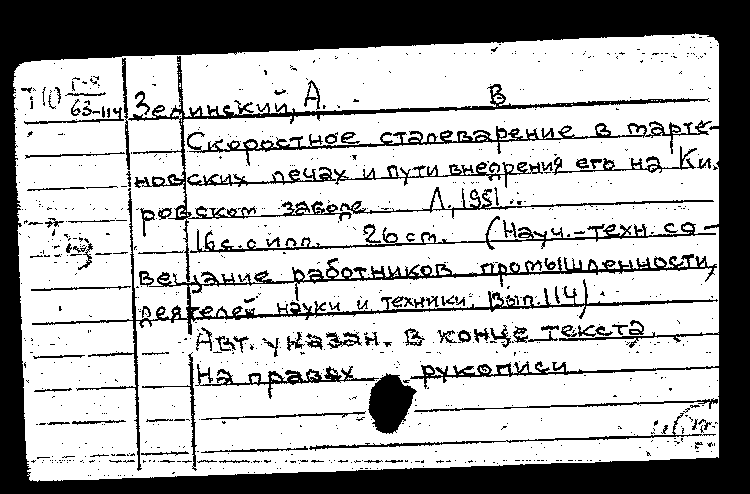 Т10 Г-9
63-114 Зелинский, А. В
Скоростное сталеварение в марте-
новских печах и пути внедрения его на Ки-
ровском заводе. Л., 1951.
16 с. с илл. 26 см. (Науч.-техн. со-
вещание работников промышленности,
деятелей науки и техники. Вып. 114).
Авт. указан. в конце текста.
На правах рукописи.